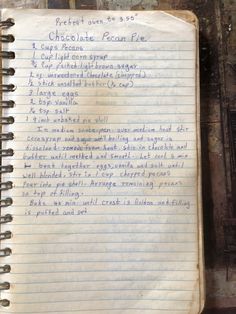 Preheat oven to 350°
Chocolate Pecan Pie
2 Cups Pecans
1 Cup light corn syrup
Cup packed light brown sugar
oz unsweetened chocolate (chopped)
1/2 stick unsalted butter (1/4 cup)
3 large eggs
1 tsp vanilla
1/4 tsp salt
1 9 inch unbaked pie shell
In medium sauce pan over medium heat stir
corn syrup and sugar until boiling and sugar is
disolved. remove from heat. stir in chocolate and
butter until melted and smooth. Let cool 5 min
beat together eggs, vanilla and salt until
well blended. Stir in 1 cup chopped pecans
Pour into pie shell. Arrange remaining pecans
on top of filling.
Bake min until crust is Golden and filling
is puffed and set